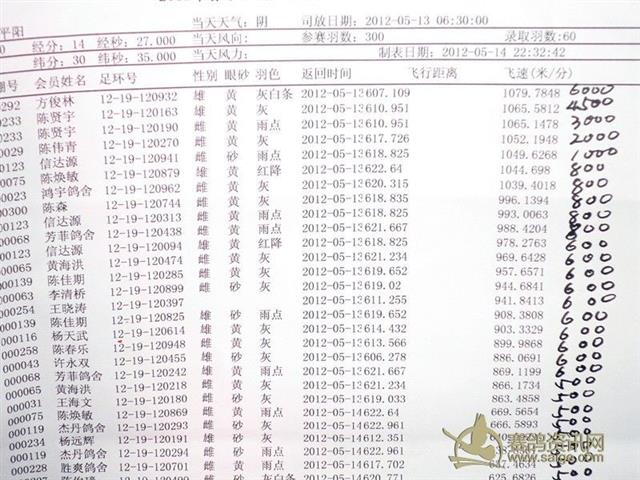 平阳 当天天气：阴 司放日期：2012-05-13 06:30:00
0 经分：14 经秒：27.000 当天风向： 参赛羽数：300 录取羽数:60
纬分：30 纬秒：35.000 当天风力： 制表日期：2012-05-14 22:32:42
棚号 会员姓名 足环号 性别 眼砂 羽色 返回时间 飞行距离 飞速(米/分)
0292 方俊林 12-19-120932 雄 黄 灰白条 2012-05-13 607.109 1079.7848 6000
0233 陈贤宇 12-19-120163 雄 黄 灰 2012-05-13 610.951 1065.5812 4500
0233 陈贤宇 12-19-120190 雌 黄 雨点 2012-05-13 610.951 1065.1478 3000
0029 陈伟青 12-19-120270 雌 黄 灰 2012-05-13 617.726 1052.1948 2000
0123 信达源 12-19-120941 雌 砂 雨点 2012-05-13 618.825 1049.6268 1000
0075 陈焕敏 12-19-120879 雄 黄 红降 2012-05-13 622.64 1044.698 800
00023 鸿宇鸽舍 12-19-120346 雌 黄 灰 2012-05-13 620.315 1039.4018 800
00300 陈森 12-19-120744 雌 黄 灰 2012-05-13 618.835 996.1394 800
00123 信达源 12-19-120313 雌 黄 雨点 2012-05-13 618.825 993.0063 800
00068 芳菲鸽舍 12-19-120438 雌 黄 雨点 2012-05-13 621.667 988.4204 800
000123 信达源 12-19-120249 雄 黄 红降 2012-05-13 618.825 978.2763 600
000065 黄海洪 12-19-120474 雄 黄 灰 2012-05-13 621.234 969.6428 600
000131 陈佳期 12-19-120285 雌 黄 灰 2012-05-13 619.652 957.6571 600
000063 李清桥 12-19-120899 雌 砂 灰 2012-05-13 619.02 944.6841 600
000254 王晓涛 12-19-120397 2012-05-13 611.255 941.8413 600
000139 陈佳期 12-19-120825 雄 砂 雨点 2012-05-13 619.652 908.3809 600
000116 杨天武 12-19-120614 雄 黄 灰 2012-05-13 614.432 903.3329 600
000258 陈春乐 12-19-120948 雌 黄 灰 2012-05-13 613.566 899.9868 600
000043 许永双 12-19-120455 雌 砂 灰 2012-05-13 606.278 886.0691 600
000068 芳菲鸽舍 12-19-120242 雌 砂 雨点 2012-05-13 621.667 869.1199 600
000065 黄海洪 12-19-120218 雌 黄 灰 2012-05-13 621.234 866.1734
000031 王海文 12-19-120180 雌 砂 灰 2012-05-13 858.3231
000075 陈焕敏 12-19-120869 雄 黄 雨点 2012-05-14 622.64 669.5654
000119 杰丹鸽舍 12-19-120291 雌 砂 灰 2012-05-14 622.961 666.5893
000234 杨远辉 12-19-120191 雄 砂 灰 2012-05-14 612.351
000119 杰丹鸽舍 12-19-120294 雌 砂 雨点 2012-05-14 622.961
000228 胜爽鸽舍 12-19-120701 雌 砂 雨点 2012-05-14 617.702 637.4634
2012-05-14 620.771 625.6826
赛鸽资讯网
www.saige.com